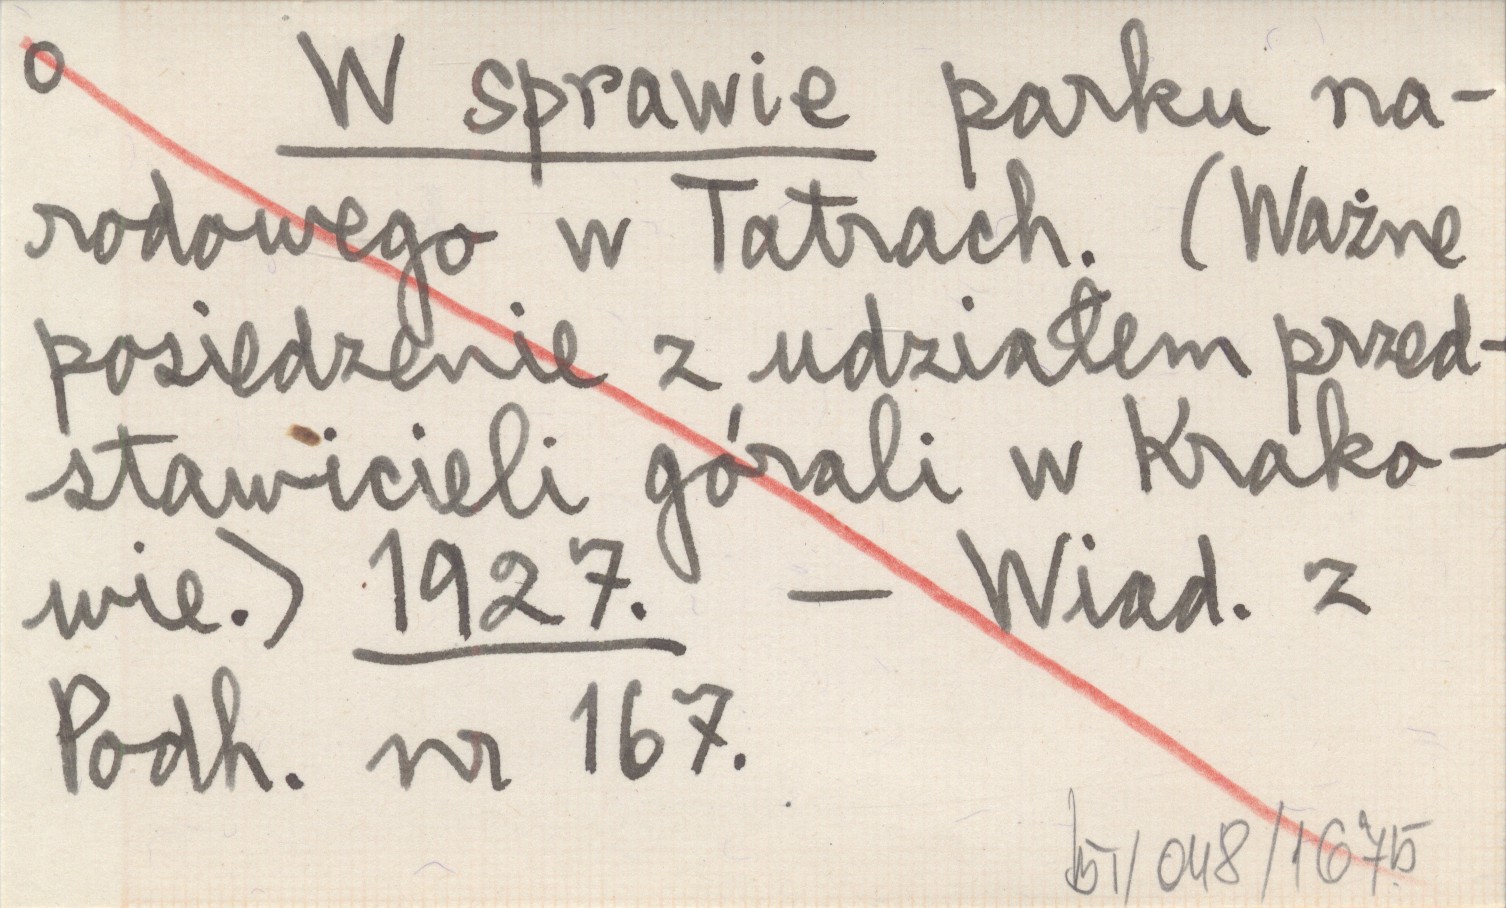 o W sprawie parku na-
rodowego w Tatrach. (Ważne
posiedzenie z udziałem przed-
stawicieli górali w Krako-
wie.) 1927. — Wiad. z
Podh. nr 167.